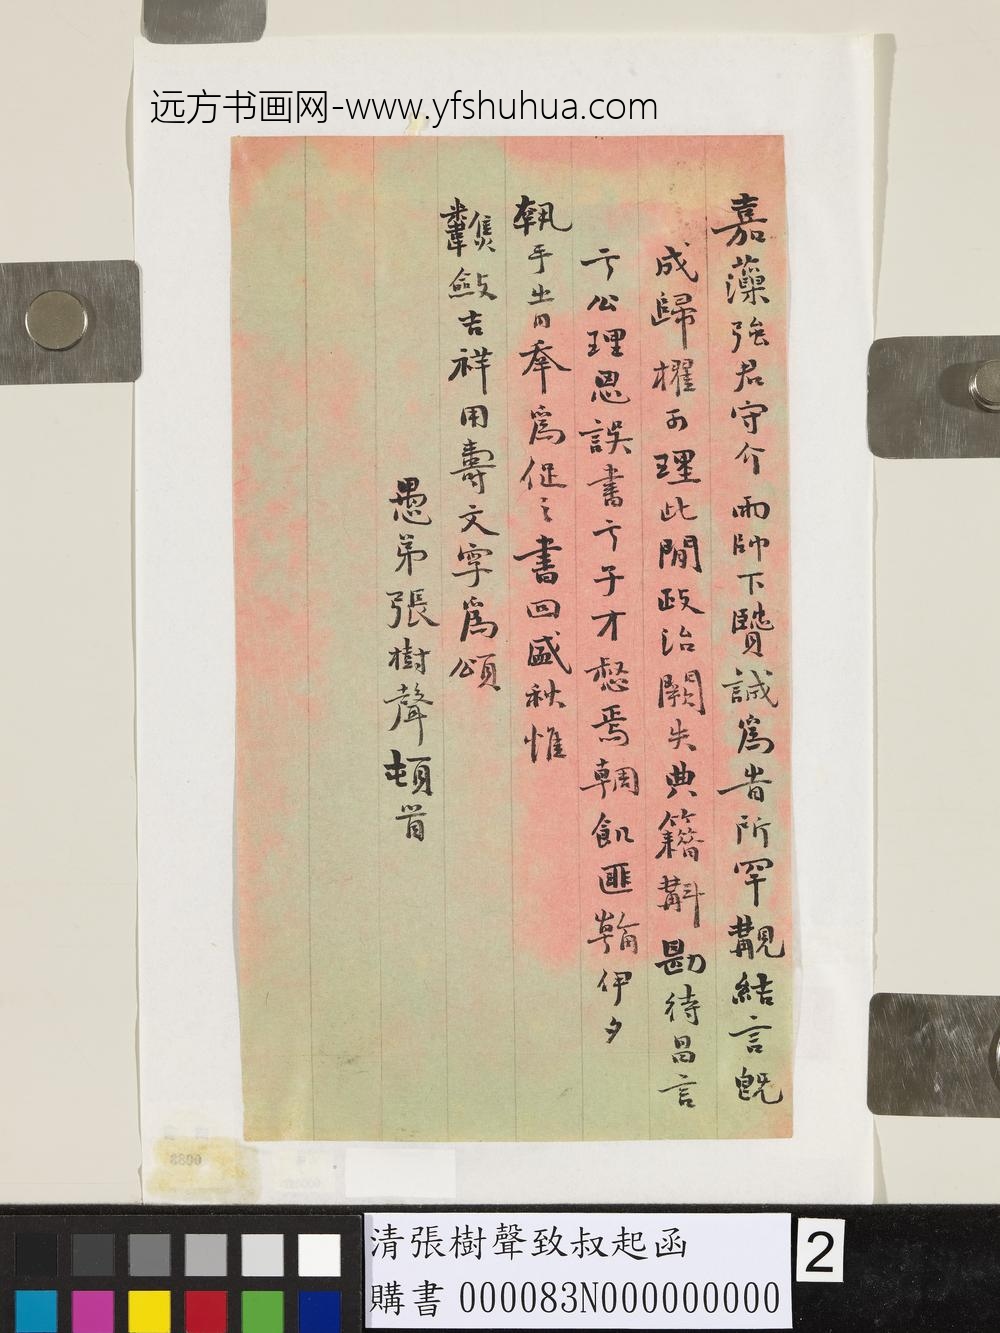 远方书画网-www.yfshuhua.com
嘉藻強君守介雨帥下贊誠為昔所罕覯結言既
成歸櫂可理此閒政治闕失典籍斠勘待昌言
亏公理思誤書亏子才愁焉輖飢匪翰伊夕
執手出奉為促之書回盛秋惟
斂吉祥用壽文字為頌
愚弟張樹聲頓首
0083
清張樹聲致叔起函
購書 000083N000000000
2